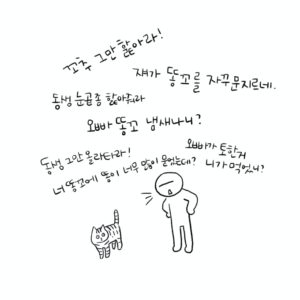 꼬추 그만 핥아라!
쟤가 똥꼬를 자꾸문지르네.
동생 눈곱좀 핥아줘라
오빠 똥꼬 냄새나니?
동생 그만 올라타라!
너 똥꼬에 똥이 너무 많이 묻었는데?
오빠가 토한거
니가 먹었니?